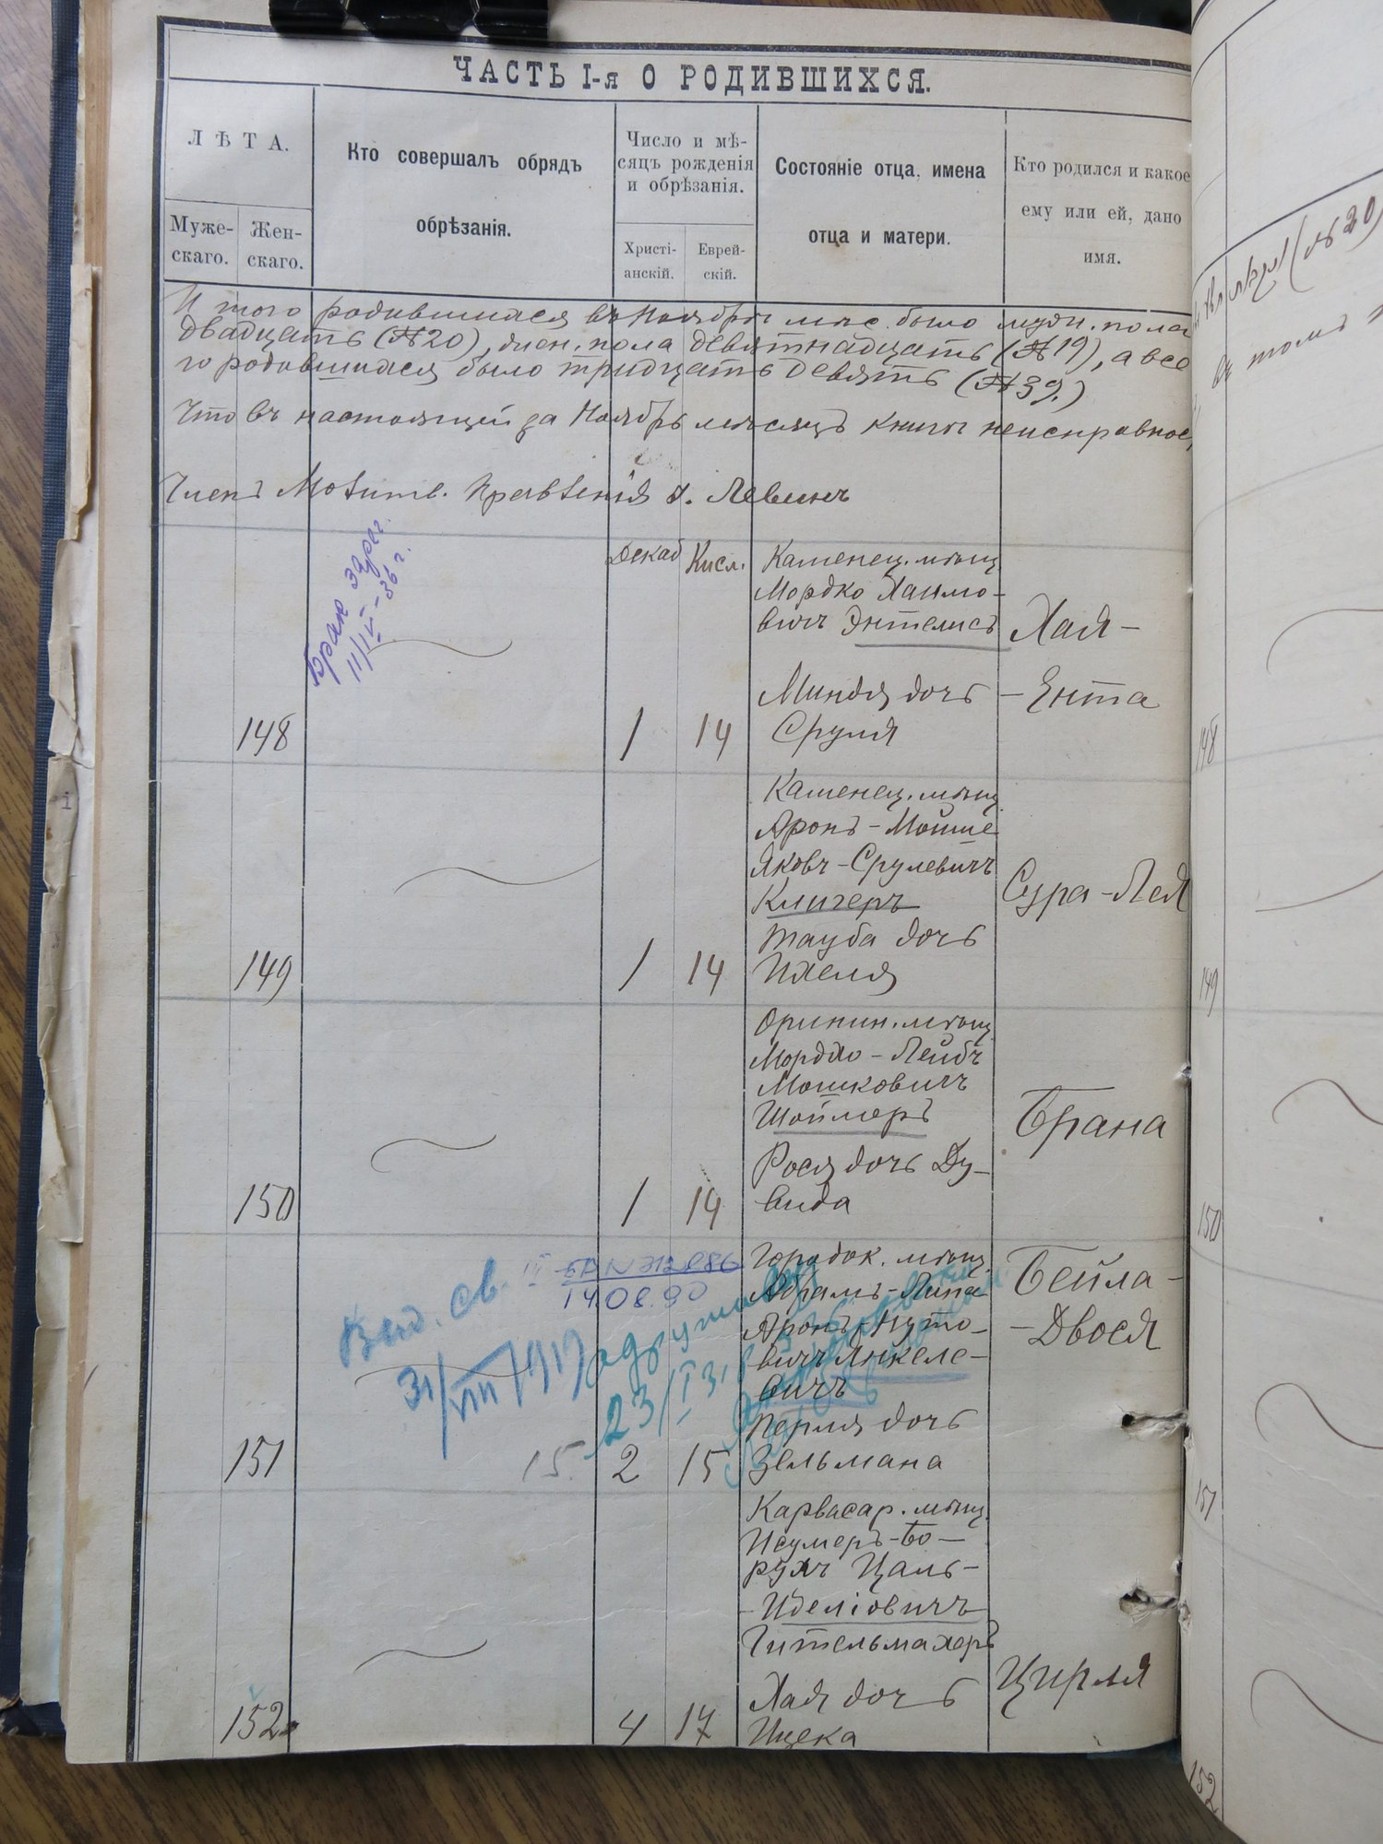 ЧАСТЬ I-я О РОДИВШИХСЯ.
ЛѢТА.
Муже-
скаго.
Жен-
скаго.
Кто совершалъ обрядъ
обрѣзанія.
Число и мѣ-
сяцъ рожденія
и обрѣзанія.
Христі-
анскій.
Еврей-
скій.
Состояніе отца, имена
отца и матери.
Кто родился и какое
ему или ей, дано
имя.
Итого родившихся въ Ноябрѣ мѣс. было муж. пола
двадцать (№20), жен. пола девятнадцать (№19), а все
го родившихся было тридцать девять (№39.)
Что въ настоящей за Ноябрь мѣсяцъ книги неисправнос,
Членъ Молитв. Правленія Левинъ
Декаб
Кисл.
Брак зарег.
11/IV-36 г.
148
1
14
Каменец. мѣщ
Мордко Хаимо-
вичъ Энтелисъ
Миндя дочь
Сруля
Хая-
-Ента
149
1
14
Каменец. мѣщ
Аронъ-Мойше
Яковъ-Срулевичъ
Клигеръ
Тауба дочь
Ихеля
Сура-Лея
150
1
14
Оринин. мѣщ
Мордко-Лейбъ
Мошковичъ
Шоймеръ
Рося дочь Ду-
вида
Брана
Выд. св.
31/VIII 1919
14.08.90
23/I
151
15.
2
15
Городок. мѣщ.
Абрамъ-Липа
Аронъ Нуто-
вичъ Янкеле-
вичъ
Перля дочь
Зельмана
Бейла-
-Двося
152
4
17
Карвасар. мѣщ.
Исумеръ-Бо-
рухъ Цаль-
-Иделіовичъ
Гительмахеръ
Хая дочь
Ицека
Цирля
(№20)
въ томъ
148
149
150
151
152